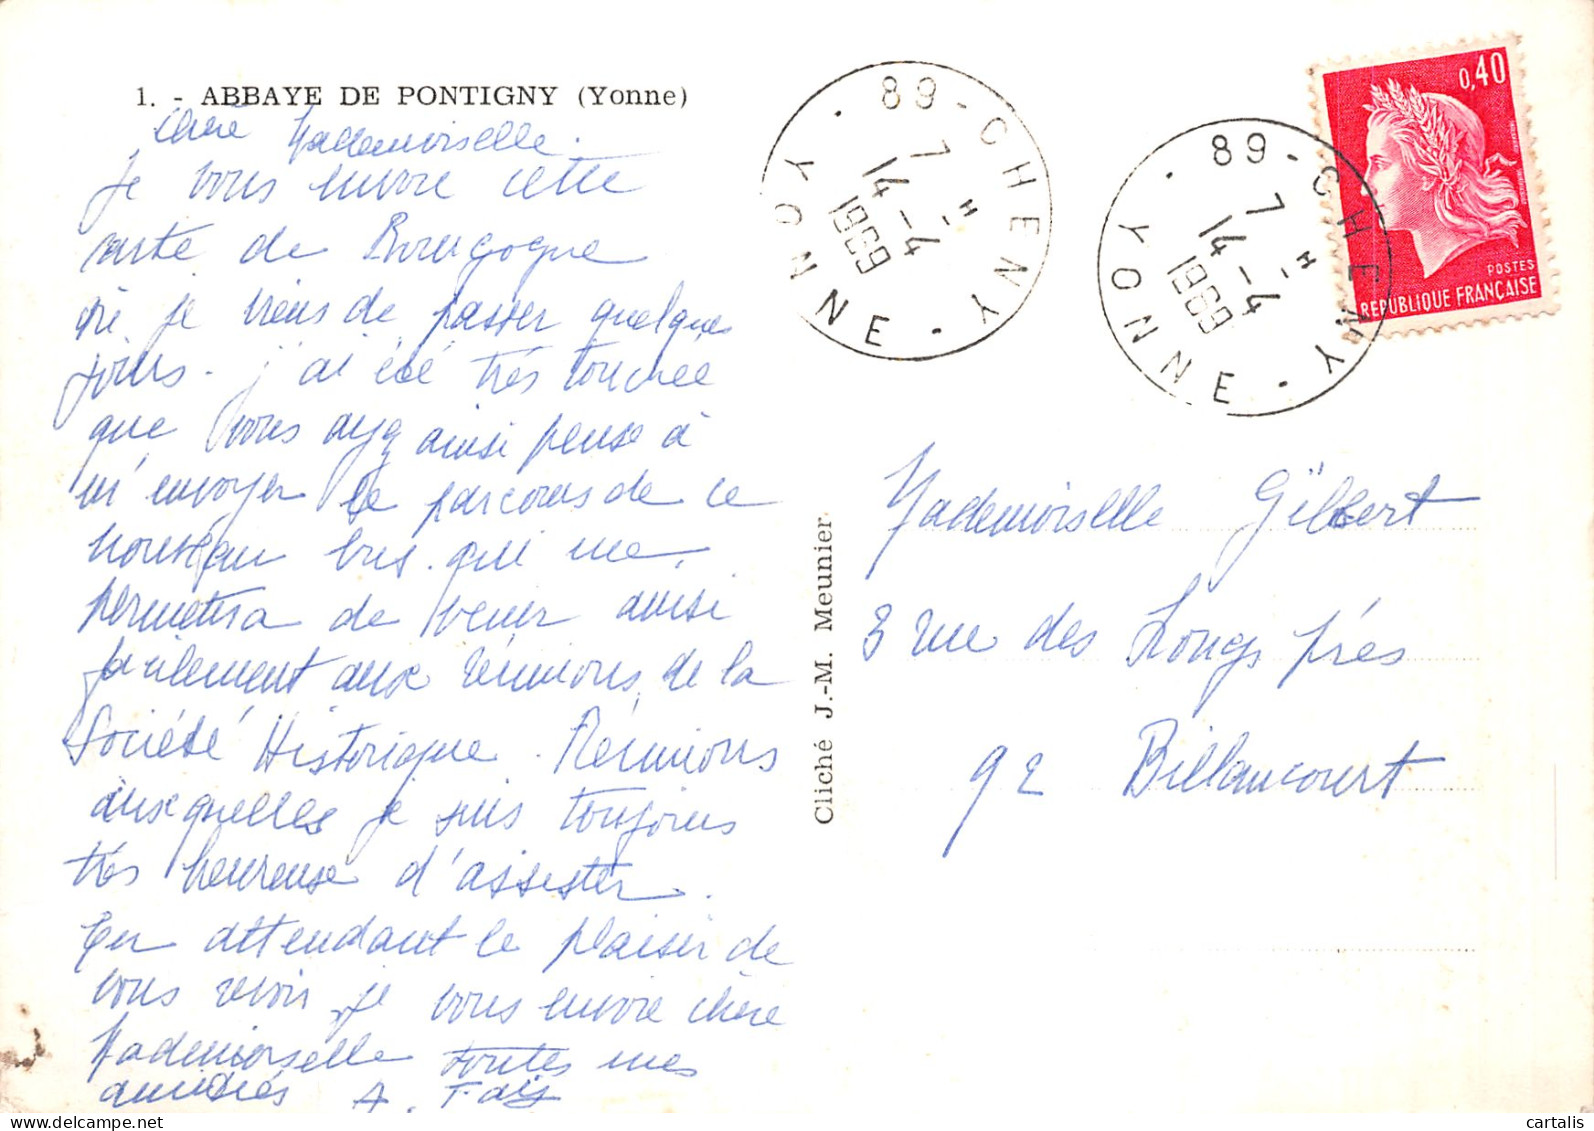 1. - ABBAYE DE PONTIGNY (Yonne)
Chère Mademoiselle.
Je vous envoie cette
carte de Bourgogne
où je viens de passer quelques
jours. j'ai été très touchée
que vous ayez ainsi pensé à
m'envoyer le parcours de ce
nouveau bus qui me
permettra de venir ainsi
facilement aux réunions de la
Société Historique. Réunions
auxquelles je suis toujours
très heureuse d'assister.
En attendant le plaisir de
vous revoir, je vous envoie chère
Mademoiselle toutes mes
amitiés A.
Cliché J.-M. Meunier
89 - CHENY · YONNE ·
7 H
14 - 4
1969
89 - CHENY · YONNE ·
7 H
14 - 4
1969
0,40
POSTES
REPUBLIQUE FRANÇAISE
Mademoiselle Gilbert
3 rue des Longs prés
92 Billancourt
www.cartalis.com
cartalis